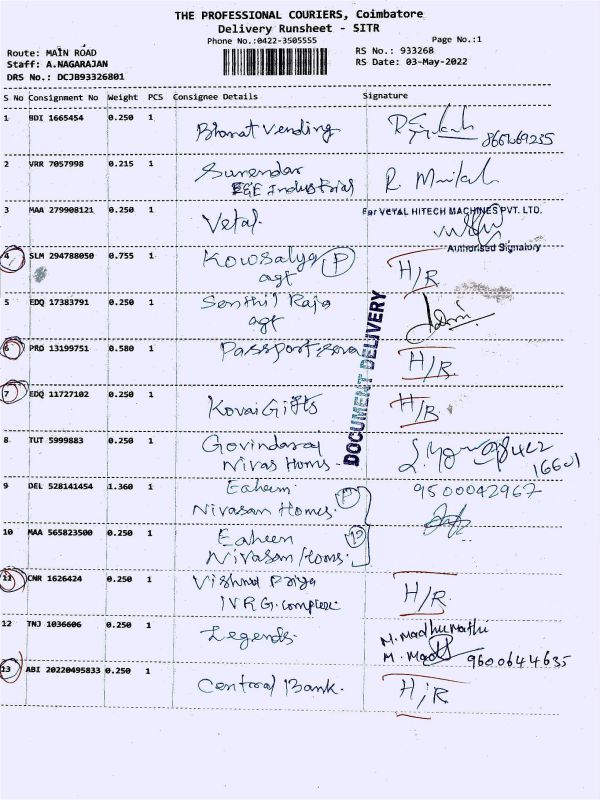 THE PROFESSIONAL COURIERS, Coimbatore
Delivery Runsheet - SITR
Phone No.:0422-3505555
Page No.:1
Route: MAIN ROAD
RS No.: 933268
Staff: A.NAGARAJAN
RS Date: 03-May-2022
DRS No.: DCJB93326801
S No Consignment No Weight PCS Consignee Details Signature
1 BDI 1665454 0.250 1 Bharat Vending
2 VRR 7057998 0.215 1 Surendar
Industrial
3 MAA 279908121 0.250 1 Vetal.
For VETAL HITECH MACHINES PVT. LTD.
Authorised Signatory
4 SLM 294788050 0.755 1 Kowsalya P H/R
agt
5 EDQ 17383791 0.250 1 Senthil Raja
agt
DOCUMENT DELIVERY
6 PRO 13199751 0.580 1 Passport H/R
7 EDQ 11727102 0.250 1 Kovai Gifts H/R
8 TUT 5999883 0.250 1 Govindaraj
Nivas Homs. 16601
9 DEL 528141454 1.360 1 Eaheem P 9500042967
Nivasan Homes.
10 MAA 565823500 0.250 1 Eaheen P
Nivasan Homs.
11 CNR 1626424 0.250 1 Vishnu Priya H/R
IVRG. complex
12 TNJ 1036606 0.250 1 Legends. M. Madhumathi
9600644635
13 ABI 20220495833 0.250 1 Central Bank. H/R